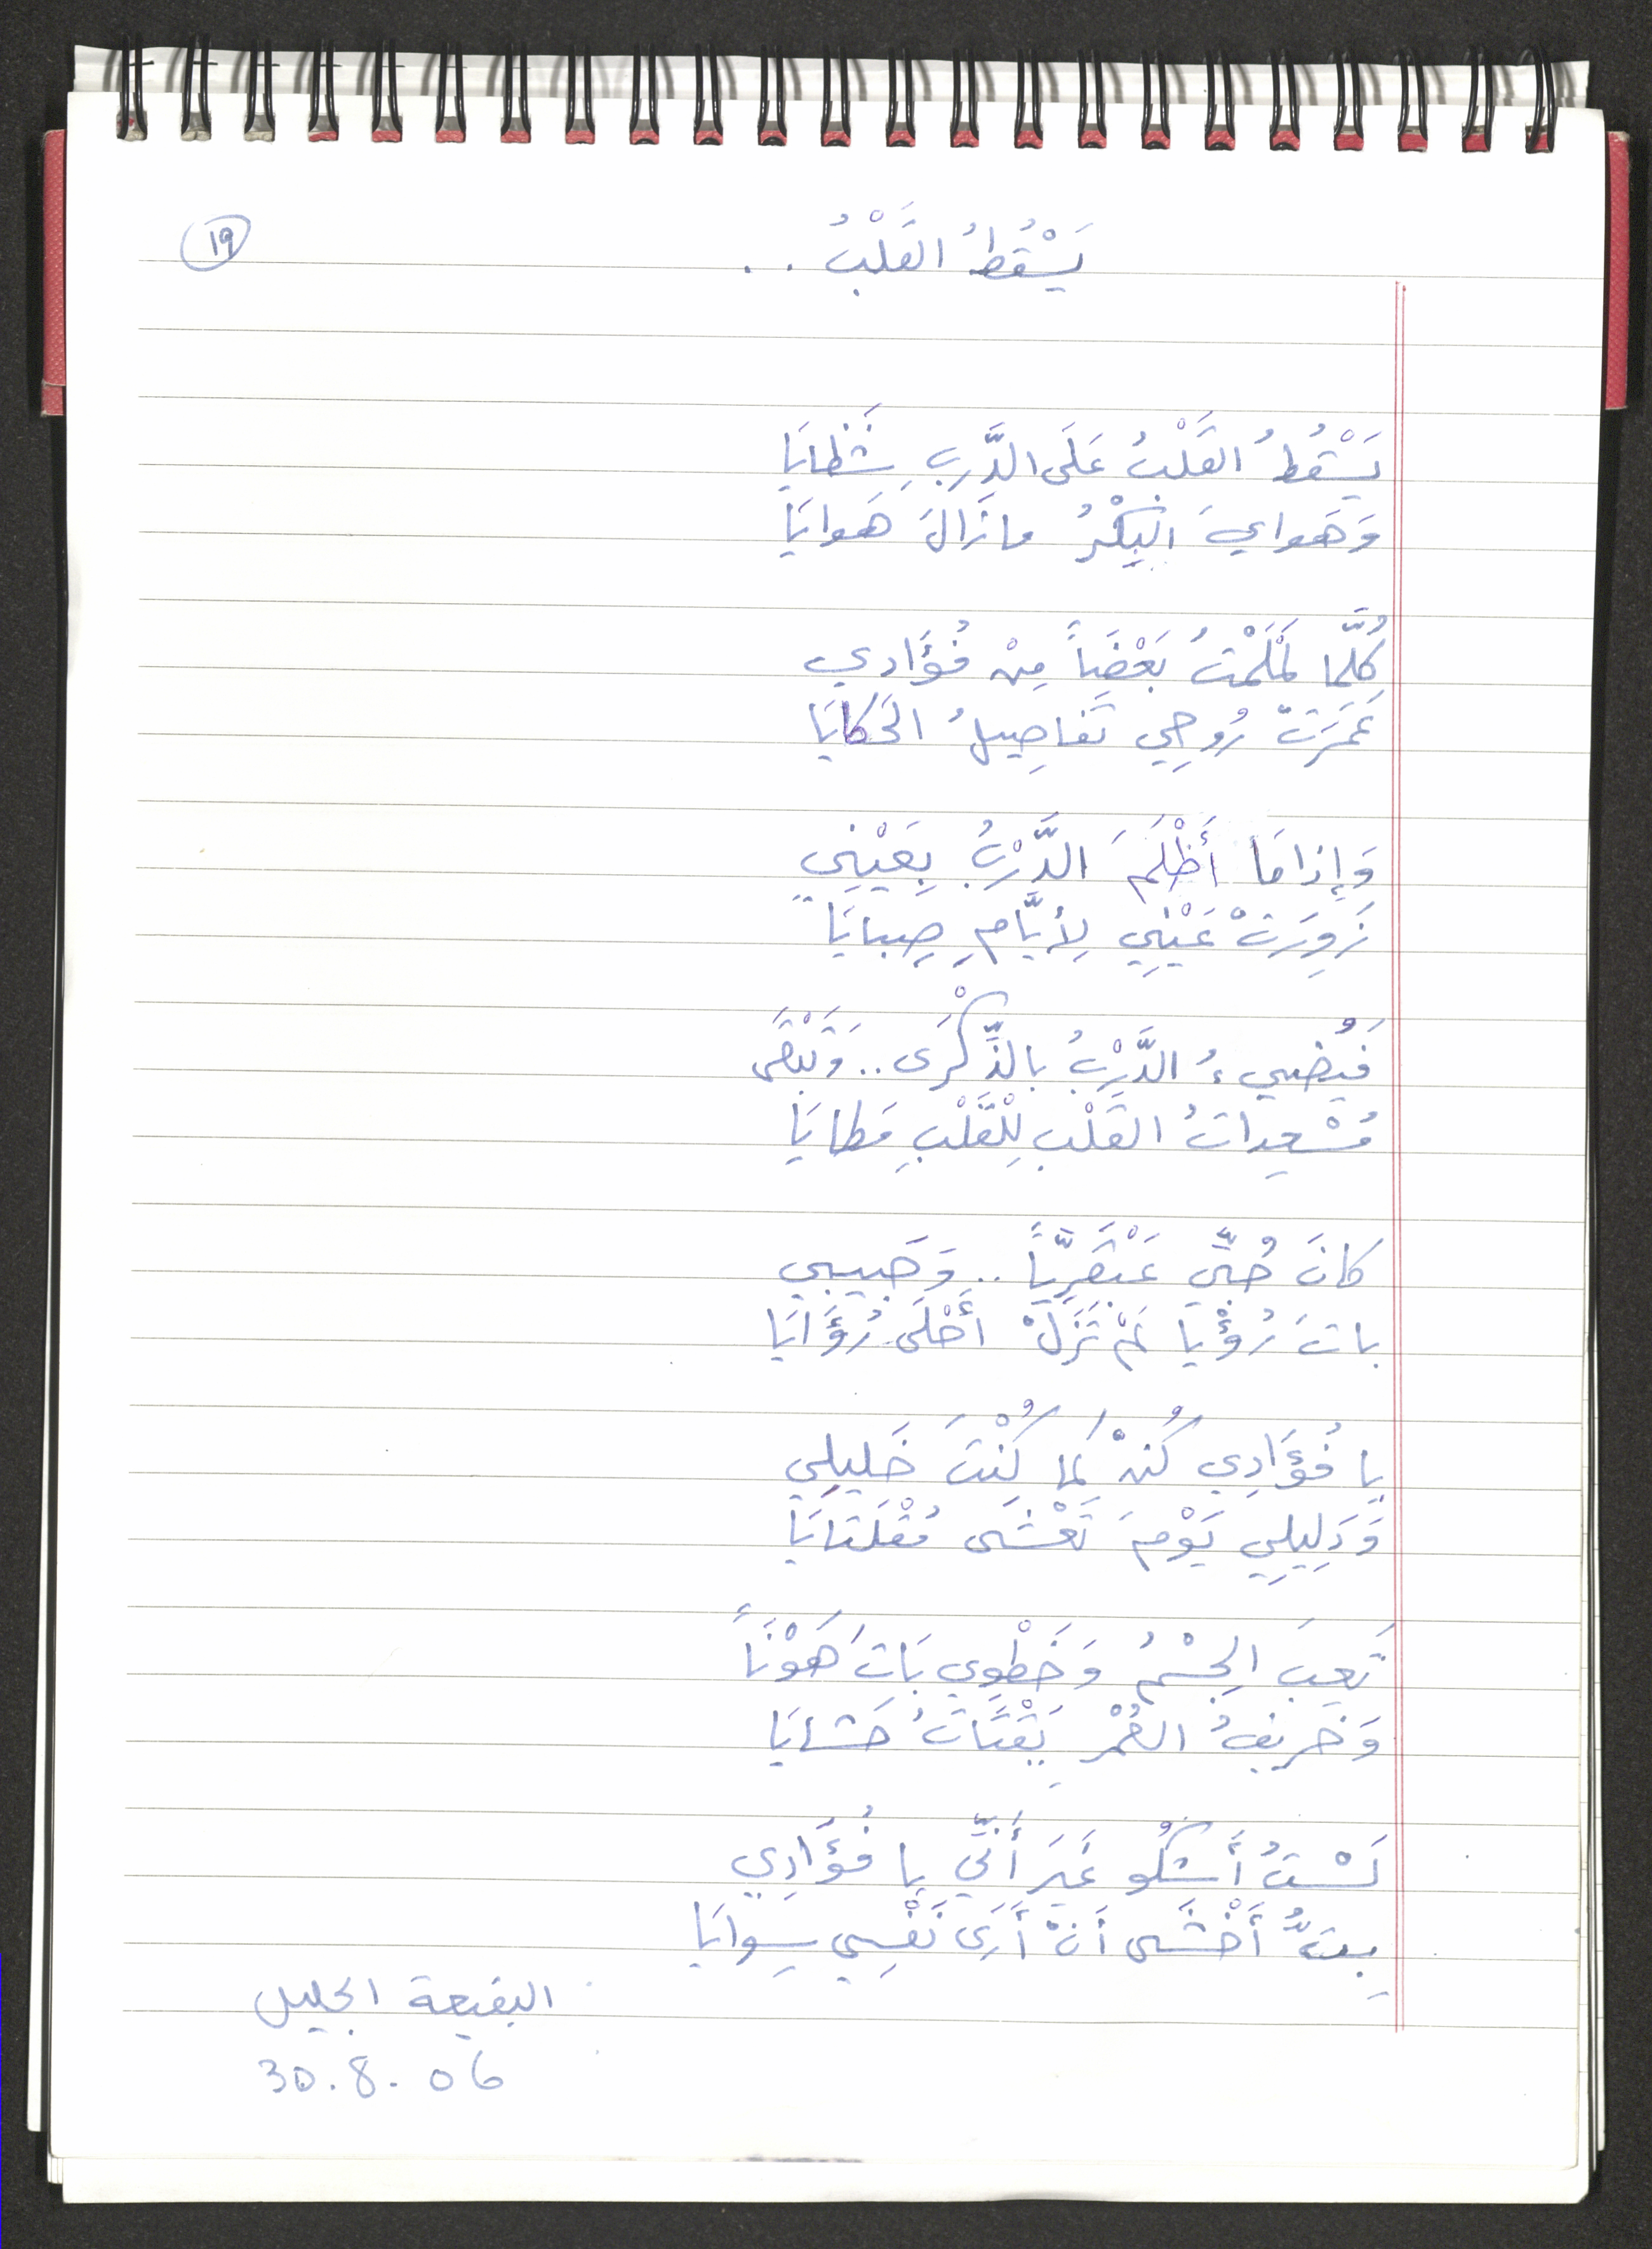 ١٩
يَسْقُطُ القَلْبُ ..
يَسْقُطُ القَلْبُ عَلَى الدَّرْبِ شَظَايَا
وَهَوايَ البِكْرُ مازَالَ هَوايَا
كُلَّما لَمْلَمْتُ بَعْضَاً مِنْ فُؤَادي
غَمَرَتْ رُوحِي تَفاصِيلُ الحَكايَا
وَإِذا مَا أَظْلَمَ الدَّرْبُ بِعَيْنِي
زَوِرَتْ عَيْنِي لِأَيَّامِ صِبايَا
فَيُضيءُ الدَّرْبُ بالذِّكْرَى .. وَتَبْقَى
مُسْعِداتُ القَلْبِ لِلْقَلْبِ مَطايَا
كانَ حُبِّي عَبْقَرِيَّاً .. وَحَبيبي
باتَ رُؤْيا لَمْ تَزَلْ أَحْلَى رُؤَايَا
يا فُؤَادِي كُنْ كَما كُنْتَ خَليلِي
وَدَلِيلِي يَوْمَ تَعْشَى مُقْلَتايَا
تَعِبَ الجِسْمُ وَخَطْوِي بَاتَ هَوْنَاً
وَخَريفُ العُمْرِ يَقْتَاتُ حَشايَا
لَسْتُ أَشْكُو غَيرَ أَنِّي يا فُؤَادِي
بِتُّ أَخْشَى أَنْ أَرَى نَفْسِي سِوايَا
البقيعة الجليل
30.8.06